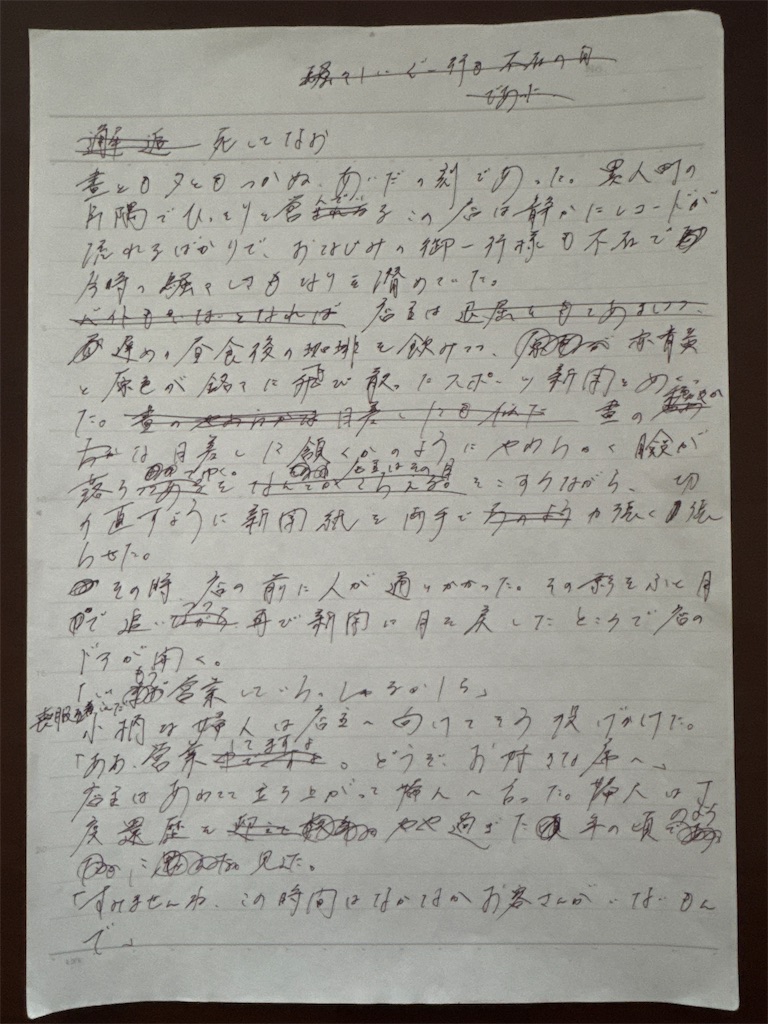 騒々しいご一行も不在の旬
であった
邂逅 死してなお
昼とも夕ともつかぬ、あいだの刻であった。異人町の
片隅でひっそりと営まれるこの店は静かにレコードが
流れるばかりで、おなじみの御一行様も不在で
片時の騒々しさもなりを潜めていた。
バイトもいないとなれば 店主は退屈をもてあましつつ
遅めの昼食後の珈琲を飲みつつ、が 赤青黄
と原色が銘々に飛び散ったスポーツ新聞をめくっ
た。昼のやわらかな日差しにも似た 昼の
な日差しに頷くかのようにやわらかく瞼が
落ち をなんてがてらえる。そこすりながら、切
り直すように新聞紙を両手で 力強く張
らせた。
その時、店の前に人が通りかかった。その影をふと目
で追いつつ 再び新聞に目を戻したところで店の
ドアが開く。
「いま もう 営業していらっしゃるかしら」
喪服を
小柄な婦人は店主へ向けてそう投げかけた。
「ああ、営業してますよ。どうぞ、お好きな席へ」
店主はあわてて立ち上がって婦人へ言った。婦人は丁
度還暦を やや過ぎた 年の頃のよう
に 見えた。
「すみませんね、この時間はなかなかお客さんがいないもん
で」